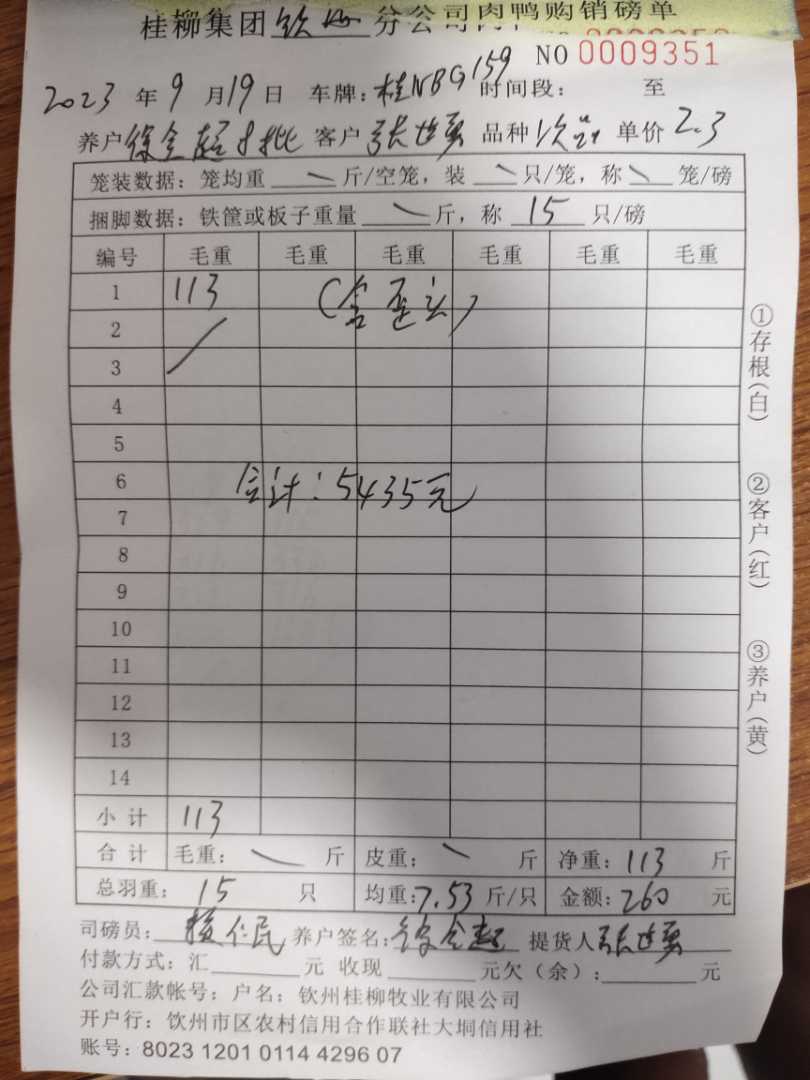 桂柳集团钦州分公司肉鸭购销磅单
NO 0009351
2023年9月19日 车牌：桂NBG159 时间段： 至
养户徐全起8批 客户张世勇 品种次品 单价2.3
笼装数据：笼均重 \ 斤/空笼，装 \ 只/笼，称 \ 笼/磅
捆脚数据：铁筐或板子重量 \ 斤，称 15 只/磅
编号 毛重 毛重 毛重 毛重 毛重 毛重
1 113 (含歪头)
2
3
4
5
6 合计：5435元
7
8
9
10
11
12
13
14
小计 113
合计 毛重： \ 斤 皮重： \ 斤 净重：113斤
总羽重：15 只 均重：7.53斤/只 金额：260元
司磅员： 仁民 养户签名：徐全起 提货人张世勇
付款方式：汇 元 收现 元欠（余）： 元
公司汇款帐号：户名：钦州桂柳牧业有限公司
开户行：钦州市区农村信用合作联社大垌信用社
账号：8023 1201 0114 4296 07
①存根(白)
②客户(红)
③养户(黄)